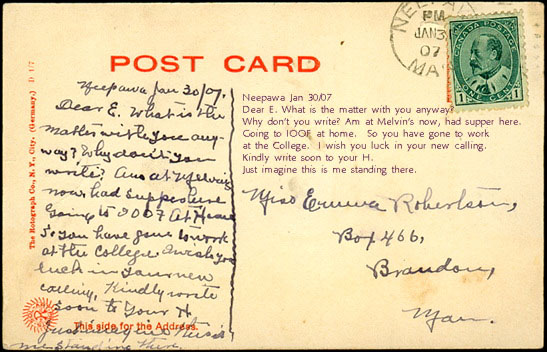 NEEPAWA
PM
JAN 3
07
MA
CANADA POSTAGE
1 1
ONE CENT
POST CARD
D 177
The Rotograph Co., N. Y., City. (Germany.)
Neepawa Jan 30/07.
Dear E. What is the
matter with you any-
way? Why don't you
write? Am at Melvin's
now, had supper here
Going to IOOF At Home
So you have gone to work
at the College. I wish you
luck in your new
calling. Kindly write
soon to your H
Just imagine this is
me standing there.
This side for the Address.
Neepawa Jan 30/07
Dear E. What is the matter with you anyway?
Why don't you write? Am at Melvin's now, had supper here.
Going to IOOF at home. So you have gone to work
at the College. I wish you luck in your new calling.
Kindly write soon to your H.
Just imagine this is me standing there.
Miss Emma Robertson,
Box 466,
Brandon,
Man.